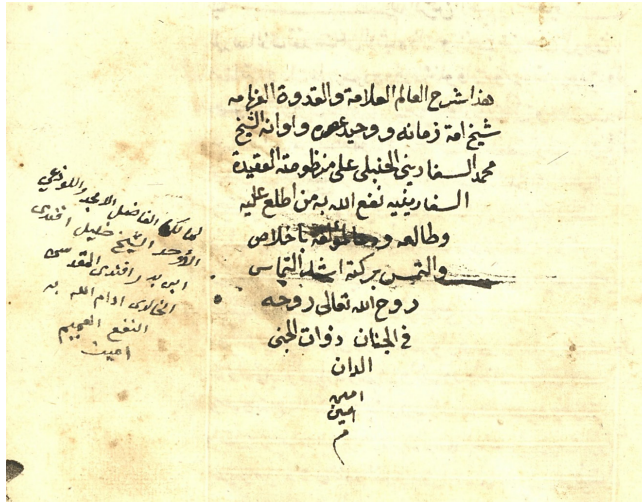 هذا شرح العالم العلامة والقدوة الفهامه
شيخ امة زمانه ووحيد عصره واوانه الشيخ
محمد السفاريني الحنبلي على منظومته العقيدة
السفارينيه نفع الله به من اطلع عليه
وطالعه باخلاص
والتمس بركته اشد التماس
روح الله تعالى روحه
في الجنان ذوات الجنى
الدان
امين
امين
م
لمالكه الفاضل الامجد واللوذعي
الأوحد الشيخ خليل افندى
ابي بدر افندى المقدسى
الخالدى ادام الله به
النفع العميم
امين